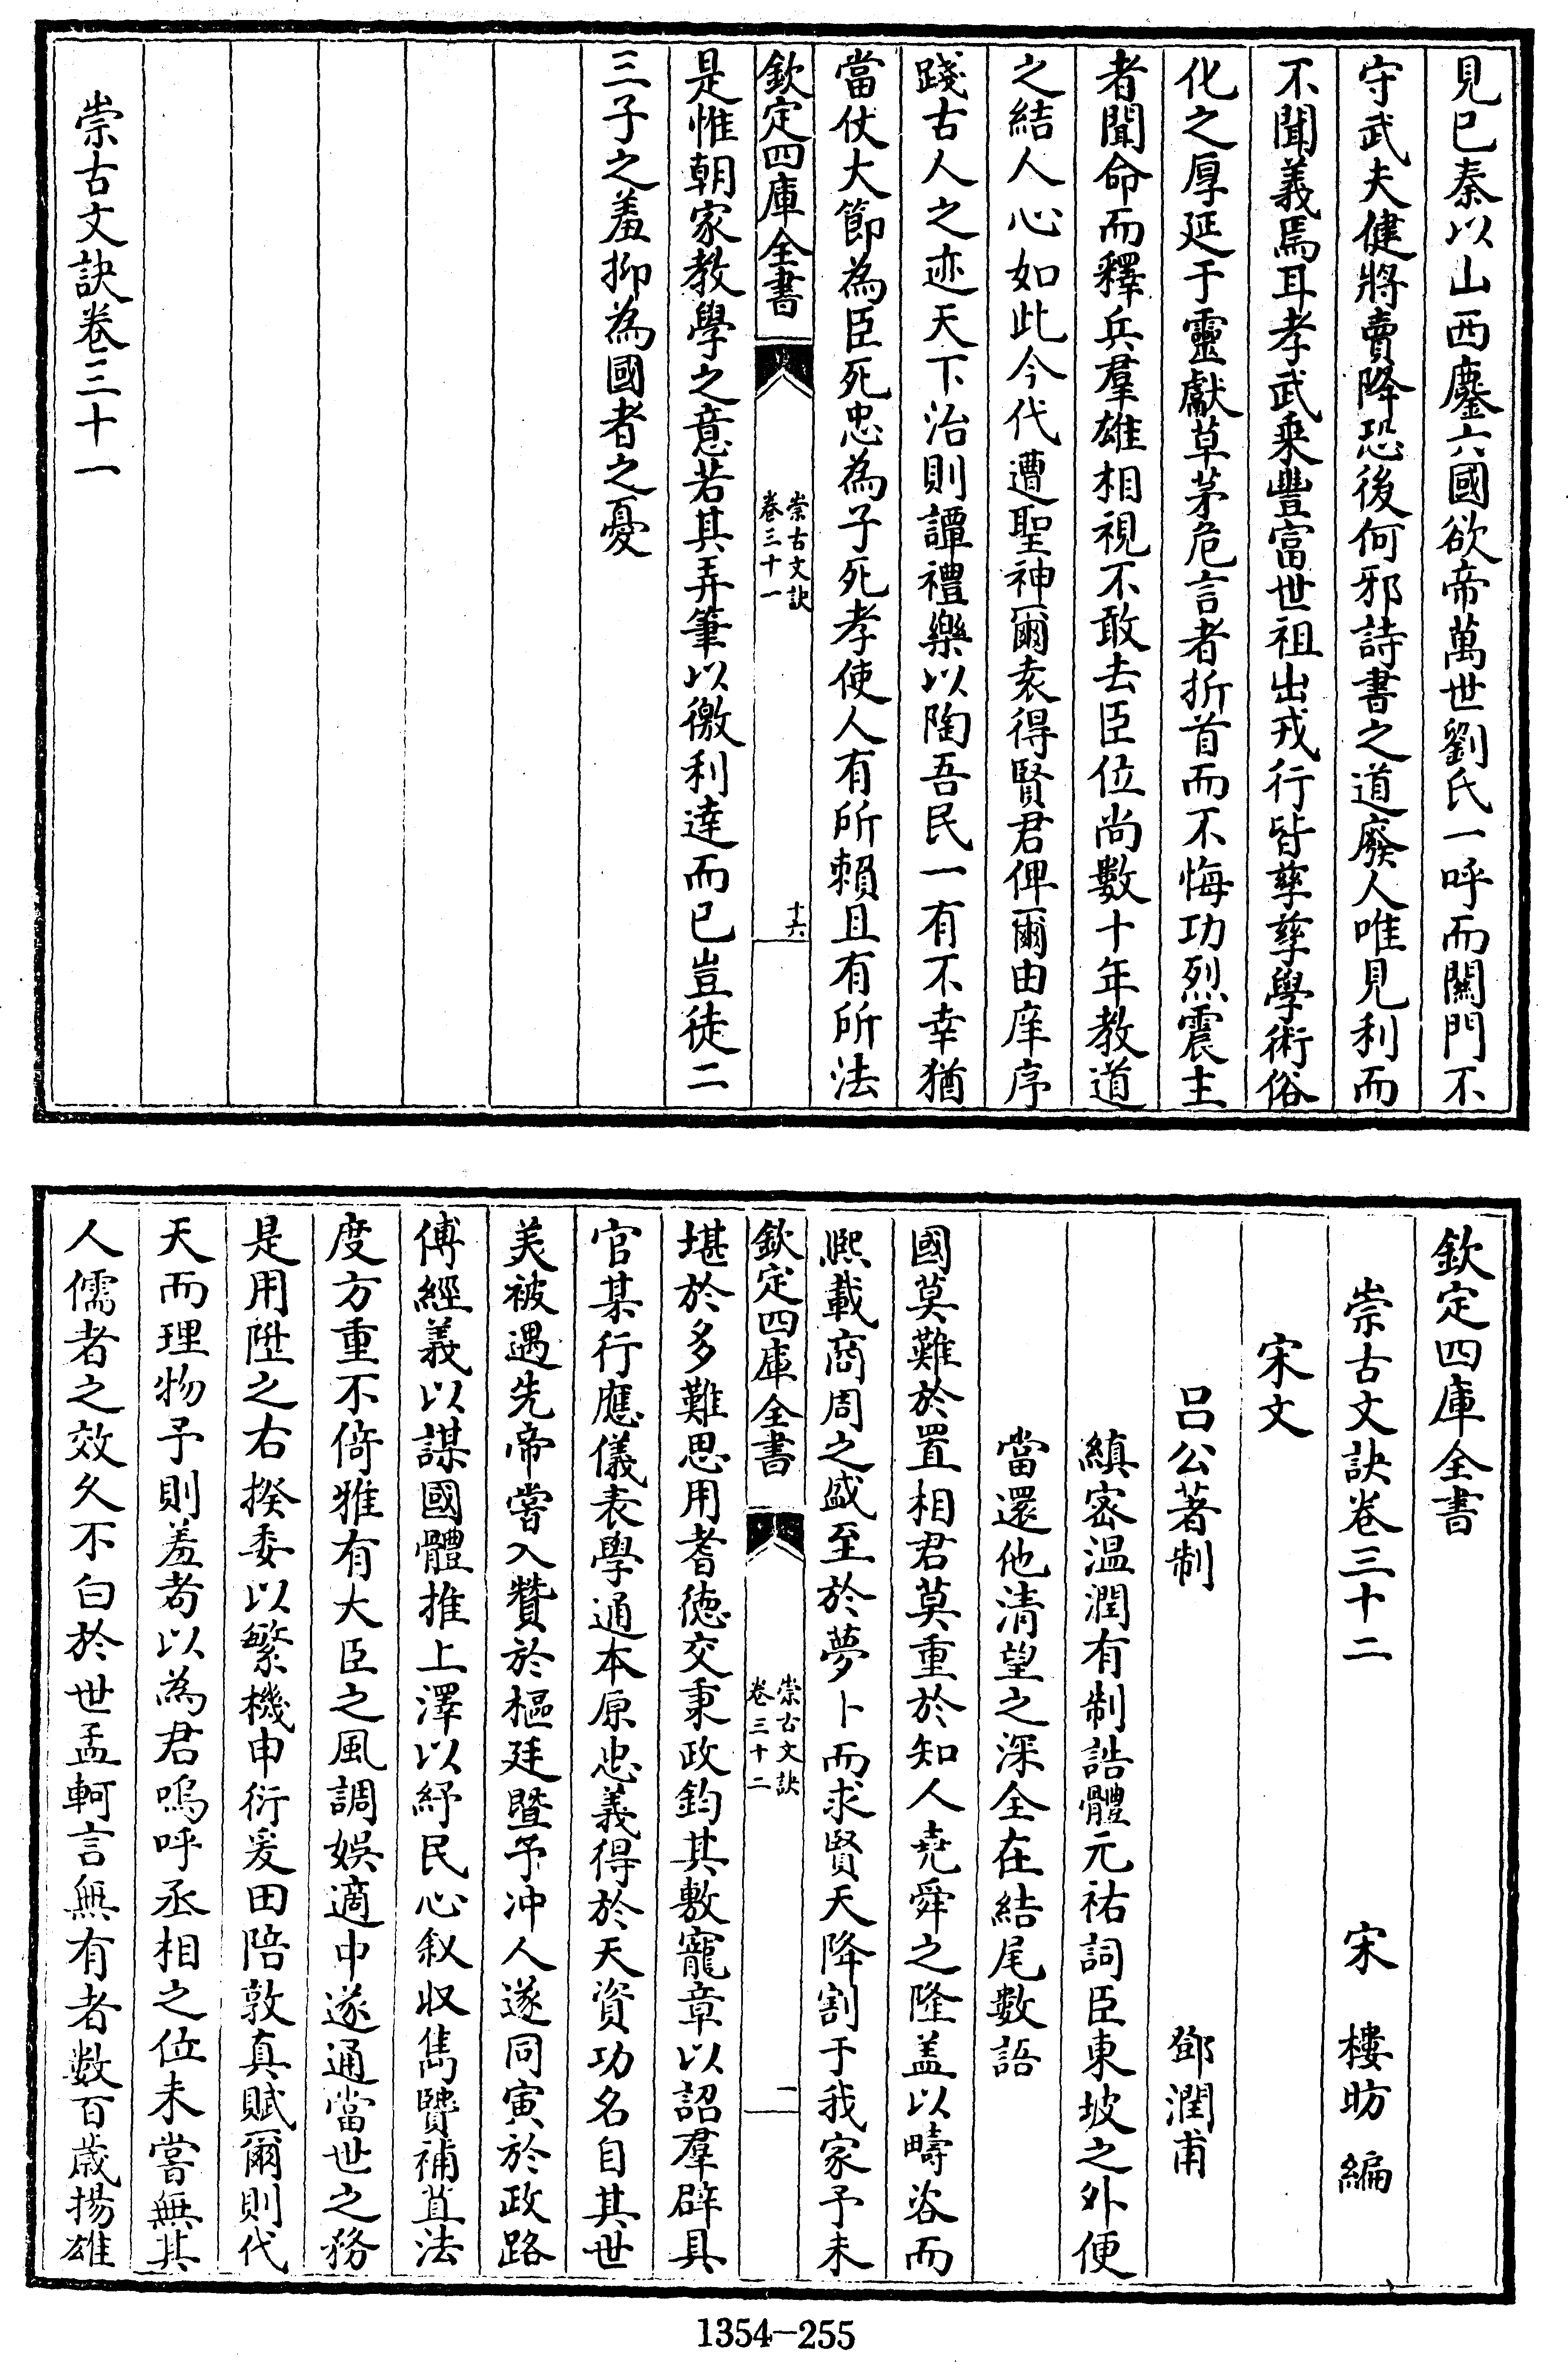 見已秦以山西鏖六國欲帝萬世劉氏一呼而關門不
守武夫健將賣降恐後何邪詩書之道廢人唯見利而
不聞義焉耳孝武乘豐富世祖出戎行皆孳孳學術俗
化之厚延于靈獻草茅危言者折首而不悔功烈震主
者聞命而釋兵羣雄相視不敢去臣位尚數十年教道
之結人心如此今代遭聖神爾袁得賢君俾爾由庠序
踐古人之迹天下治則譚禮樂以陶吾民一有不幸猶
當仗大節為臣死忠為子死孝使人有所賴且有所法
欽定四庫全書
崇古文訣
卷三十一
十六
是惟朝家教學之意若其弄筆以徼利達而已豈徒二
三子之羞抑為國者之憂
崇古文訣卷三十一
欽定四庫全書
崇古文訣卷三十二 宋 樓昉 編
宋文
呂公著制 鄧潤甫
縝密温潤有制誥體元祐詞臣東坡之外便
當還他清望之深全在結尾數語
國莫難於置相君莫重於知人堯舜之隆盖以疇咨而
熙載商周之盛至於夢卜而求賢天降割于我家予未
欽定四庫全書
崇古文訣
卷三十二
一
堪於多難思用耆徳交秉政鈞其敷寵章以詔羣辟具
官某行應儀表學通本原忠義得於天資功名自其世
美被遇先帝嘗入贊於樞廷暨予冲人遂同寅於政路
傅經義以謀國體推上澤以紓民心叙収雋賢補苴法
度方重不倚雅有大臣之風調娱適中遂通當世之務
是用陞之右揆委以繁機申衍爰田陪敦真賦爾則代
天而理物予則羞耇以為君嗚呼丞相之位未嘗無其
人儒者之效久不白於世孟軻言無有者數百歲揚雄
1354-255